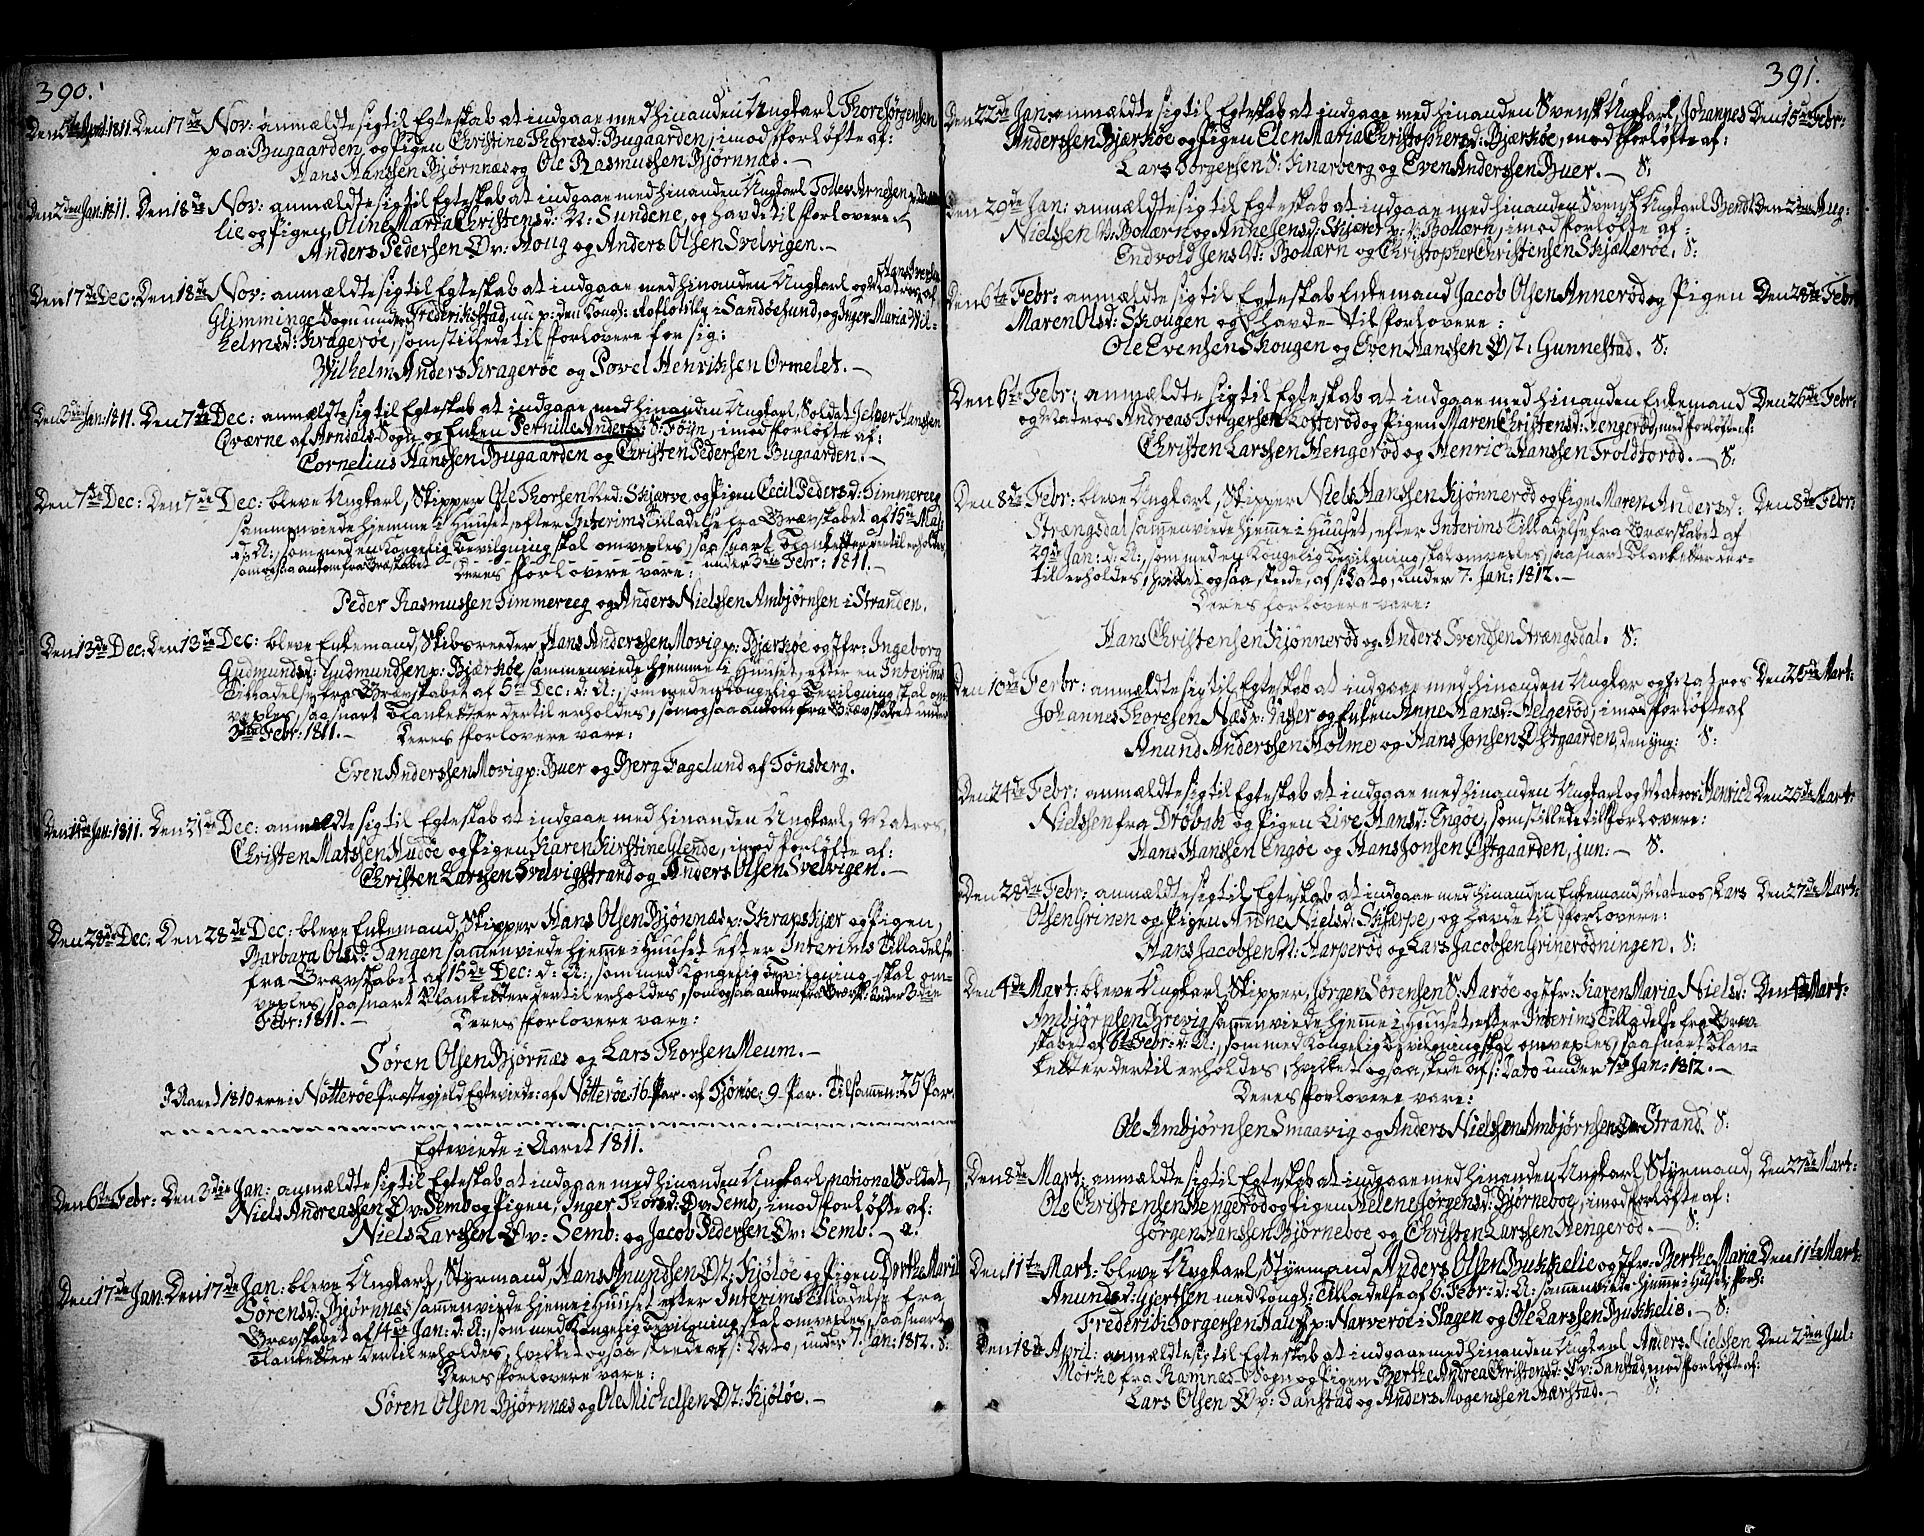 390.
Den 17de Nov: anmældte sig til Egteskab at indgaae med hinanden Ungkarl Thore Jørgensen
paa Bugaarden, og Pigen Christine Thoresd: Bugaarden, imod forløfte af:
Hans Hanssen Bjørnnæs og Ole Rasmussen Bjørnnæs. —
Den 2den Jan: 1811. Den 18de Nov: anmældte sig til Egteskab at indgaae med hinanden Ungkarl Tollev Arnesen
lie og Pigen, Oline Maria Christensd: N: Sundene, og havde til forlovere:
Anders Pedersen Øv: Houg og Anders Olsen Svelvigen. —
Den 17de Dec: Den 18de Nov: anmældte sig til Egteskab at indgaae med hinanden Ungkarl og Matros, Hans af
Glimminge Sogn under Frederichstad, nu p: den Kongl: Roeflotille i Sandøesund, og Inger Maria Wil-
helmsd: Kragerøe, som stillede til forlovere for sig:
Wilhelm Anders Kragerøe og Povel Henrichsen Ormelet. —
Jan: 1811. Den 7de Dec: anmældte sig til Egteskab at indgaae med hinanden Ungkarl, Soldat Jesper Hansen
Qværne af Arndals Sogn og Enken Pernille Andersd: S: Føyn, imod forløfte af:
Cornelius Hanssen Bugaarden og Christen Pedersen Bugaarden. —
Den 7de Dec: Den 7de Dec: bleve Ungkarl, Skipper Ole Thorsen Ned: Skjærve, og Pigen Cecil Pedersd: Timmereeg
sammenviede hjemme i Huuset, efter Interims Tilladelse fra Brævskabet af 15de
d: A:, som med en Kongelig Bevilgning skal omvexles, saa snart Blanketter dertil erholdes,
som ogsaa ankom fra Brævskabet under 3die Febr: 1811. —
Deres forlovere vare:
Peder Rasmussen Timmereeg og Anders Nielssen Ambjørnsen i Stranden.
Den 13de Dec: Den 13de Dec: bleve Enkemand, Skibsreeder, Hans Anderssen Movig p: Bjærkøe og Jfr: Ingeborg
Gudmundsd: Gudmundsen p: Bjærkøe, sammenviede hjemme i Huuset, efter en Interims
Tilladelse fra Brævskabet af 5te Dec: d: A:, som med en Kongelig Bevilgning skal om-
vexles, saa snart Blanketter dertil erholdes, som ogsaa ankom fra Brævskabet under
3die Febr: 1811. — Deres forlovere vare:
Even Anderssen Movig p: Buer og Berg Fagelund af Tønsberg.
Jan: 1811. Den 21de Dec: anmældte sig til Egteskab at indgaae med hinanden Ungkarl, Matros,
Christen Matssen Husøe og Pigen Karen Kirstine Glende, imod forløfte af:
Christen Larssen Svelvigstrand og Anders Olsen Svelvigen. —
Den 28de Dec: Den 28de Dec: bleve Enkemand, Skipper Hans Olsen Bjønnæs v: Skrapskjær og Pigen,
Barbara Olsd: Tangen sammenviede hjemme i Huuset efter Interims Tilladelse
fra Brævskabet af 15de Dec: d: A:, som med Kongelig Bevilgning skal om-
vexles, saa snart Blanketter dertil erholdes, som ogsaa ankom fra Brævsk: under 3die
Febr: 1811. — Deres forlovere vare:
Søren Olsen Bjørnæs og Lars Thorsen Meum. —
I Aaret 1810 ere i Nøtterøe Præstegjeld Egteviede: af Nøtterøe: 16 Par. af Tjømøe: 9 Par. Tilsammen: 25 Par.
Egteviede i Aaret 1811.
Den 6te Febr: Den 3die Jan: anmældte sig til Egteskab at indgaae med hinanden Ungkarl, national Soldat,
Niels Andreassen Øv: Semb og Pigen, Inger Thorsd: Øv: Semb, imod forløfte af:
Niels Larssen Øv: Semb: og Jacob Pedersen Øv: Semb. — a.
Den 17de Jan: Den 17de Jan: bleve Ungkarl, Styrmand, Hans Anundsen Øst: Kjøløe og Pigen Dorthe Maria
Sørensd: Bjørnnæs sammenviede hjeme i Huuset efter Interims Tilladelse fra
Brævskabet af 4de Jan: d: A:, som med Kongelig Bevilgning skal omvexles, saa snart
Blanketter dertil erholdes, hvilket ogsaa skeede af s: Dato, under 7. Jan: 1812. S:
Deres forlovere vare:
Søren Olsen Bjørnnæs og Ole Michelsen Øst: Kjøløe. —
391.
Den 22de Jan: anmældte sig til Egteskab at indgaae med hinanden Svensk Ungkarl, Johannes Den 15de Febr:
Anderssen Bjærkøe og Pigen Elen Maria Christophersd: Bjærkøe, mod forløfte af:
Lars Torgersen S: Knarberg og Even Anderssen Buer. — S:
Den 29de Jan: anmældte sig til Egteskab at indgaae med hinanden Svensk Ungkarl Bendt Den 2den Aug:
Nielssen Bollærn og Anne Jensd: Skjærer p: Bollærn, imod forløfte af:
Endvold Jens Øst: Bollærn og Christopher Christensen Skjællerøe. S:
Den 6te Febr: anmældte sig til Egteskab Enkemand Jacob Olsen Annerød og Pigen Den 28de Febr:
Maren Olsd: Skougen og havde til forlovere:
Ole Evensen Skougen og Even Hanssen Øst: Gunnestad. S:
Den 6te Febr: anmældte sig til Egteskab at indgaae med hinanden Enkemand Den 26de Febr:
og Matros Andreas Torgersen Lofterød og Pigen Maren Christensd: Hengerød, mod forløfte af:
Christen Larssen Hengerød og Henrich Hanssen Troldtorød. — S:
Den 8de Febr: bleve Ungkarl, Skipper Niels Hanssen Kjønnerød og Pigen Maren Andersd: Den 8de Febr:
Strængsdal sammenviede hjemme i Huuset, efter Interims Tilladelse fra Brævskabet af
29de Jan: d: A:, som med en Kongelig Bevilgning skal omvexles, saa snart Blanketter der-
til erholdes, hvilket ogsaa skeede, af s: Dato, under 7. Jan: 1812. —
Deres forlovere vare:
Hans Christensen Kjønnerød og Anders Svendsen Strængsdal. S:
Den 10de Ferbr: anmældte sig til Egteskab at indgaae med hinanden Ungkar og Matros Den 25de Mart:
Johannes Thoresen Næs v: Visser og Enken Anne Hansd: Helgerød, imod forløfte af
Anund Anderssen Holme og Hans Jonsen Østgaarden, den yng: S:
Den 24de Febr: anmældte sig til Egteskab at indgaae med hinanden Ungkarl og Matros Henrich Den 25de Mart:
Nielssen fra Drøbak og Pigen Live Hansd: Engøe, som stillede til forlovere:
Hans Hanssen Engøe og Hans Jonsen Østgaarden, jun: — S.
Den 28de Febr: anmældte sig til Egteskab at indgaae med hinanden Enkemand, Matros Lars Den 27de Mart:
Olsen Grinen og Pigen Anne Nielsd: Skjerpe, og havde til forlovere:
Hans Jacobsen N: Harperød og Lars Jacobsen Grinerødningen. S:
Den 4de Mart: bleve Ungkarl, Skipper, Jørgen Sørensen S: Aarøe og Jfr: Karen Maria Nielsd: Den 4de Mart:
Ambjørnsen Brevig sammenviede hjemme i Huuset, efter Interims Tilladelse fra Bræv-
skabet af 6te Febr: d: A:, som med Kongelig Bevilgning skal omvexles, saa snart Blan-
ketter dertil erholdes, hvilket ogsaa skede af s: Dato under 7de Jan: 1812. —
Deres forlovere vare:
Ole Ambjørnsen Smaavig og Anders Nielssen Ambjørnsen Strand. S:
Den 8de Mart: anmældte sig til Egteskab at indgaae med hinanden Ungkarl, Styrmand, Den 27de Mart:
Ole Christensen Hengerød og Pigen Helene Jørgensd: Bjørneboe, imod forløfte af:
Jørgen Hanssen Bjørneboe og Christen Larssen Hengerød. — S:
Den 11te Mart: bleve Ungkarl, Styrmand, Anders Olsen Bukkelie og Jfr: Berthe Maria Den 11te Mart:
Anundsd: Gjertsen med Kongl: Tilladelse af 6. Febr: d: A: sammenviede hjemme i Huuset, forl:
Frederich Torgersen Hall p: Narverøe i Slagen og Ole Larssen Bukkelie. — S:
Den 18de April: anmældte sig til Egteskab at indgaae med hinanden Ungkarl Anders Nielssen Den 2den Jul:
Mørke fra Ramnæs Sogn og Pigen Berthe Andrea Christensd: Øv: Tanstad, mod forløfte af:
Lars Olsen Øv: Tanstad og Anders Mogenssen Hærstad. — S: